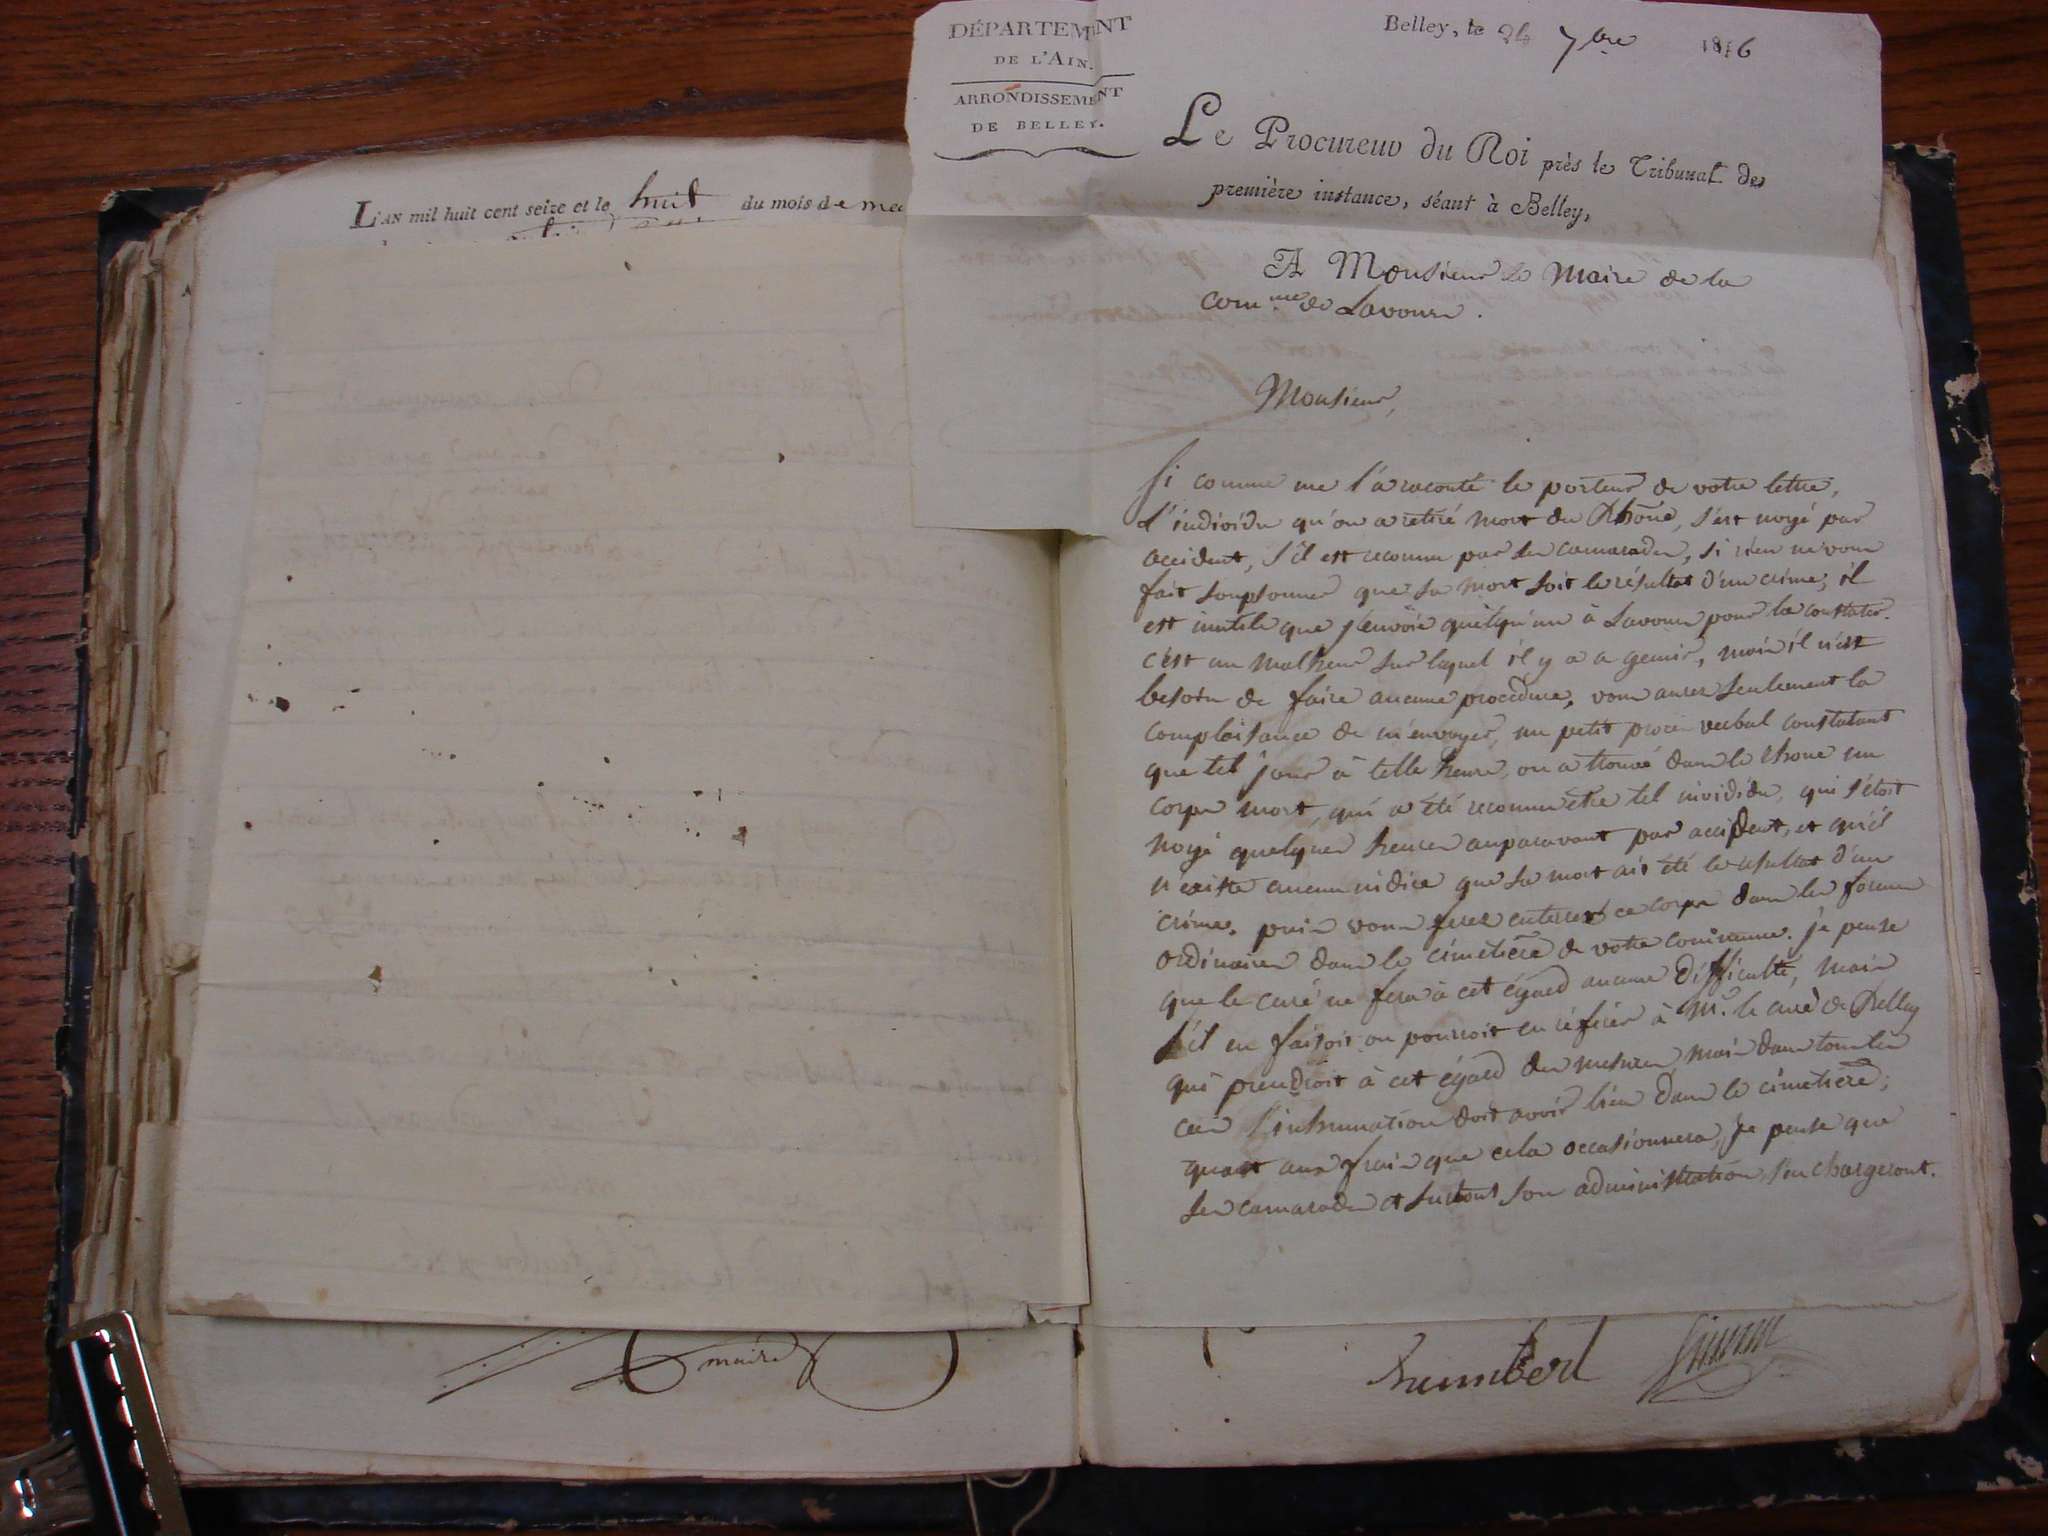 L'AN mil huit cent seize et le huit du mois de
maire
DÉPARTEMENT
DE L'AIN.
ARRONDISSEMENT
DE BELLEY.
Belley, le 24 7bre 1816
Le Procureur du Roi près le Tribunal de
première instance, séant à Belley,
A Monsieur le Maire de la
comme de Lavours.
Monsieur,
Si comme me l'a raconté le porteur de votre lettre,
l'individu qu'on a retiré mort du Rhône, s'est noyé par
accident, s'il est reconnu par ses camarades, si rien ne vous
fait soupsonner que sa mort soit le résultat d'un crime, il
est inutile que j'envoie quelqu'un à Lavours pour la constater.
c'est un malheur sur lequel il y a a gemir, mais il n'est
besoin de faire aucune procédure, vous aurez seulement la
complaisance de m'envoyer, un petit procès verbal constatant
que tel jour à telle heure, on a trouvé dans le rhone un
corps mort, qui a été reconnu être tel individu, qui s'étoit
noyé quelques heures auparavant par accident, et qu'il
n'existe aucun indice que sa mort ait été le résultat d'un
crime. puis vous ferez enterrer ce corps dans les formes
ordinaires dans le cimetière de votre commune. je pense
que le curé ne fera à cet égard aucune difficulté, mais
s'il en faisoit on pourroit en référer à Mr. le curé de Belley
qui prendroit à cet égard des mesures, mais dans tous les
cas l'inhumation doit avoir lieu dans le cimetière;
quant aux frais que cela occasionnera, je pense que
ses camarades et surtout son administration, s'en chargeront.
humbert